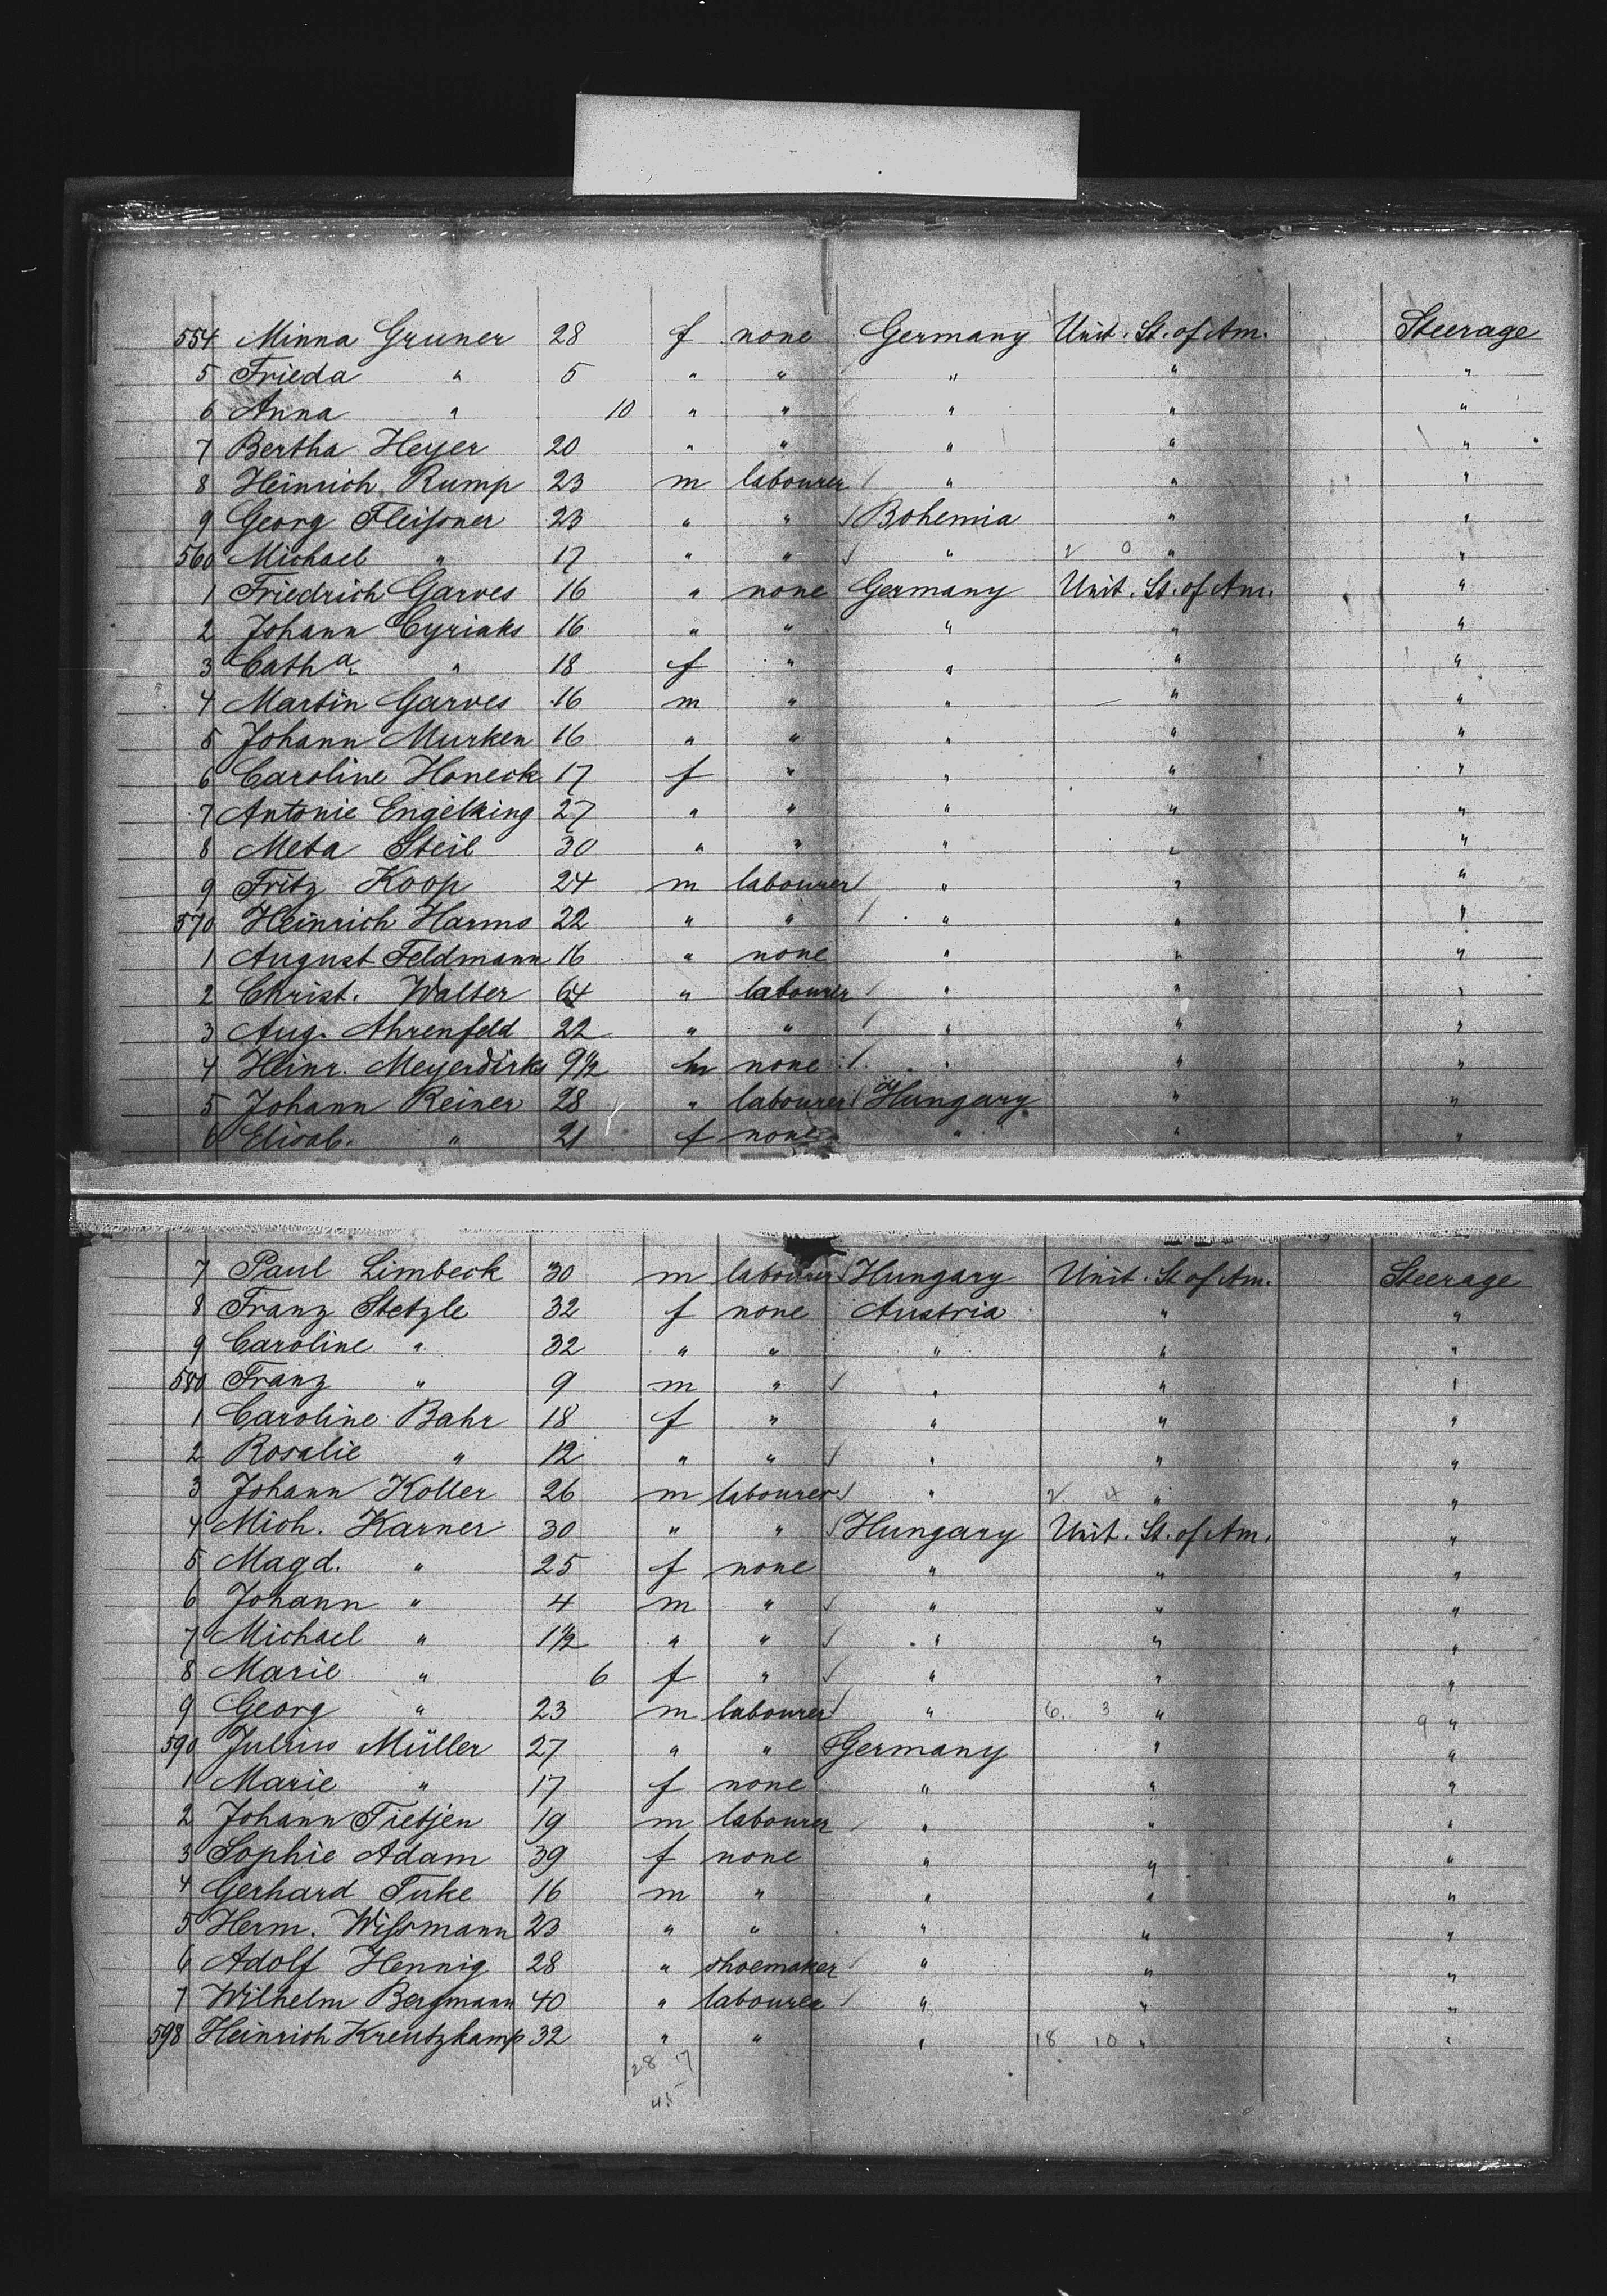 554 Minna Gruner 28 f none Germany Unit. St. of Am. Steerage
5 Frieda " 5 " " " " "
6 Anna " 10 " " " " "
7 Bertha Heyer 20 " " " " "
8 Heinrich Rump 23 m labourer / " " "
9 Georg Fleißner 23 " " / Bohemia " "
560 Michael " 17 " " / " 2 0 " "
1 Friedrich Garves 16 " none Germany Unit. St. of Am. "
2 Johann Cyriaks 16 " " " " "
3 Cath a. " 18 f " " " "
4 Martin Garves 16 m " " " "
5 Johann Murken 16 " " " " "
6 Caroline Honeck 17 f " " " "
7 Antonie Engelking 27 " " " " "
8 Meta Steil 30 " " " " "
9 Fritz Koop 24 m labourer / " " "
570 Heinrich Harms 22 " " / " " "
1 August Feldmann 16 " none " " "
2 Christ. Walter 64 " labourer / " " "
3 Aug. Ahrenfeld 22 " " / " " "
4 Heinr. Meyerdirks 9 1/2 m none / " " "
5 Johann Reiner 28 " labourer / Hungary " "
6 Elisab. " 21 f none " " "
7 Paul Limbeck 30 m labourer / Hungary Unit. St. of Am. Steerage
8 Franz Stetzle 32 f none Austria " "
9 Caroline " 32 " " " " "
580 Franz " 9 m " / " " "
1 Caroline Bahr 18 f " " " "
2 Rosalie " 12 " " / " " "
3 Johann Koller 26 m labourer / " 2 4 " "
4 Mich. Karner 30 " " / Hungary Unit. St. of Am. "
5 Magd. " 25 f none " " "
6 Johann " 4 m " / " " "
7 Michael " 1 1/2 " " / " " "
8 Marie " 6 f " / " " "
9 Georg " 23 m labourer / " 6. 3 " 9 "
590 Julius Müller 27 " " / Germany " "
1 Marie " 17 f none " " "
2 Johann Tietjen 19 m labourer / " " "
3 Sophie Adam 39 f none " " "
4 Gerhard Tuke 16 m " " " "
5 Herm. Wißmann 23 " " " " "
6 Adolf Hennig 28 " shoemaker / " " "
7 Wilhelm Bergmann 40 " labourer / " " "
598 Heinrich Kreutzkamp 32 " " " 18 10 " "
28 17
45